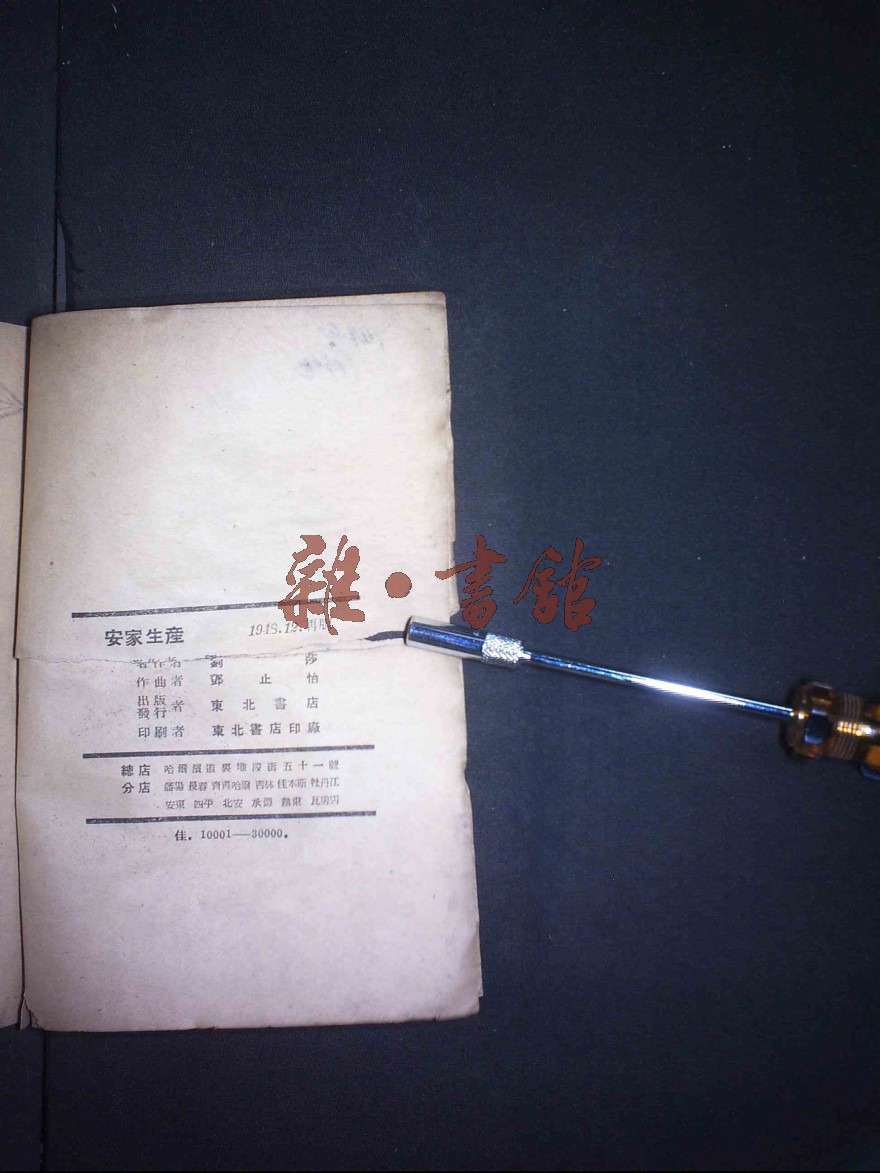 雜·書館
安家生產 1948.12.再版
著作者 劉莎
作曲者 鄧止怡
出版
發行者 東北書店
印刷者 東北書店印廠
總店 哈爾濱道裏地段街五十一號
分店 瀋陽 長春 齊齊哈爾 吉林 佳木斯 牡丹江
安東 四平 北安 承德 熱東 瓦房店
佳. 10001—30000.